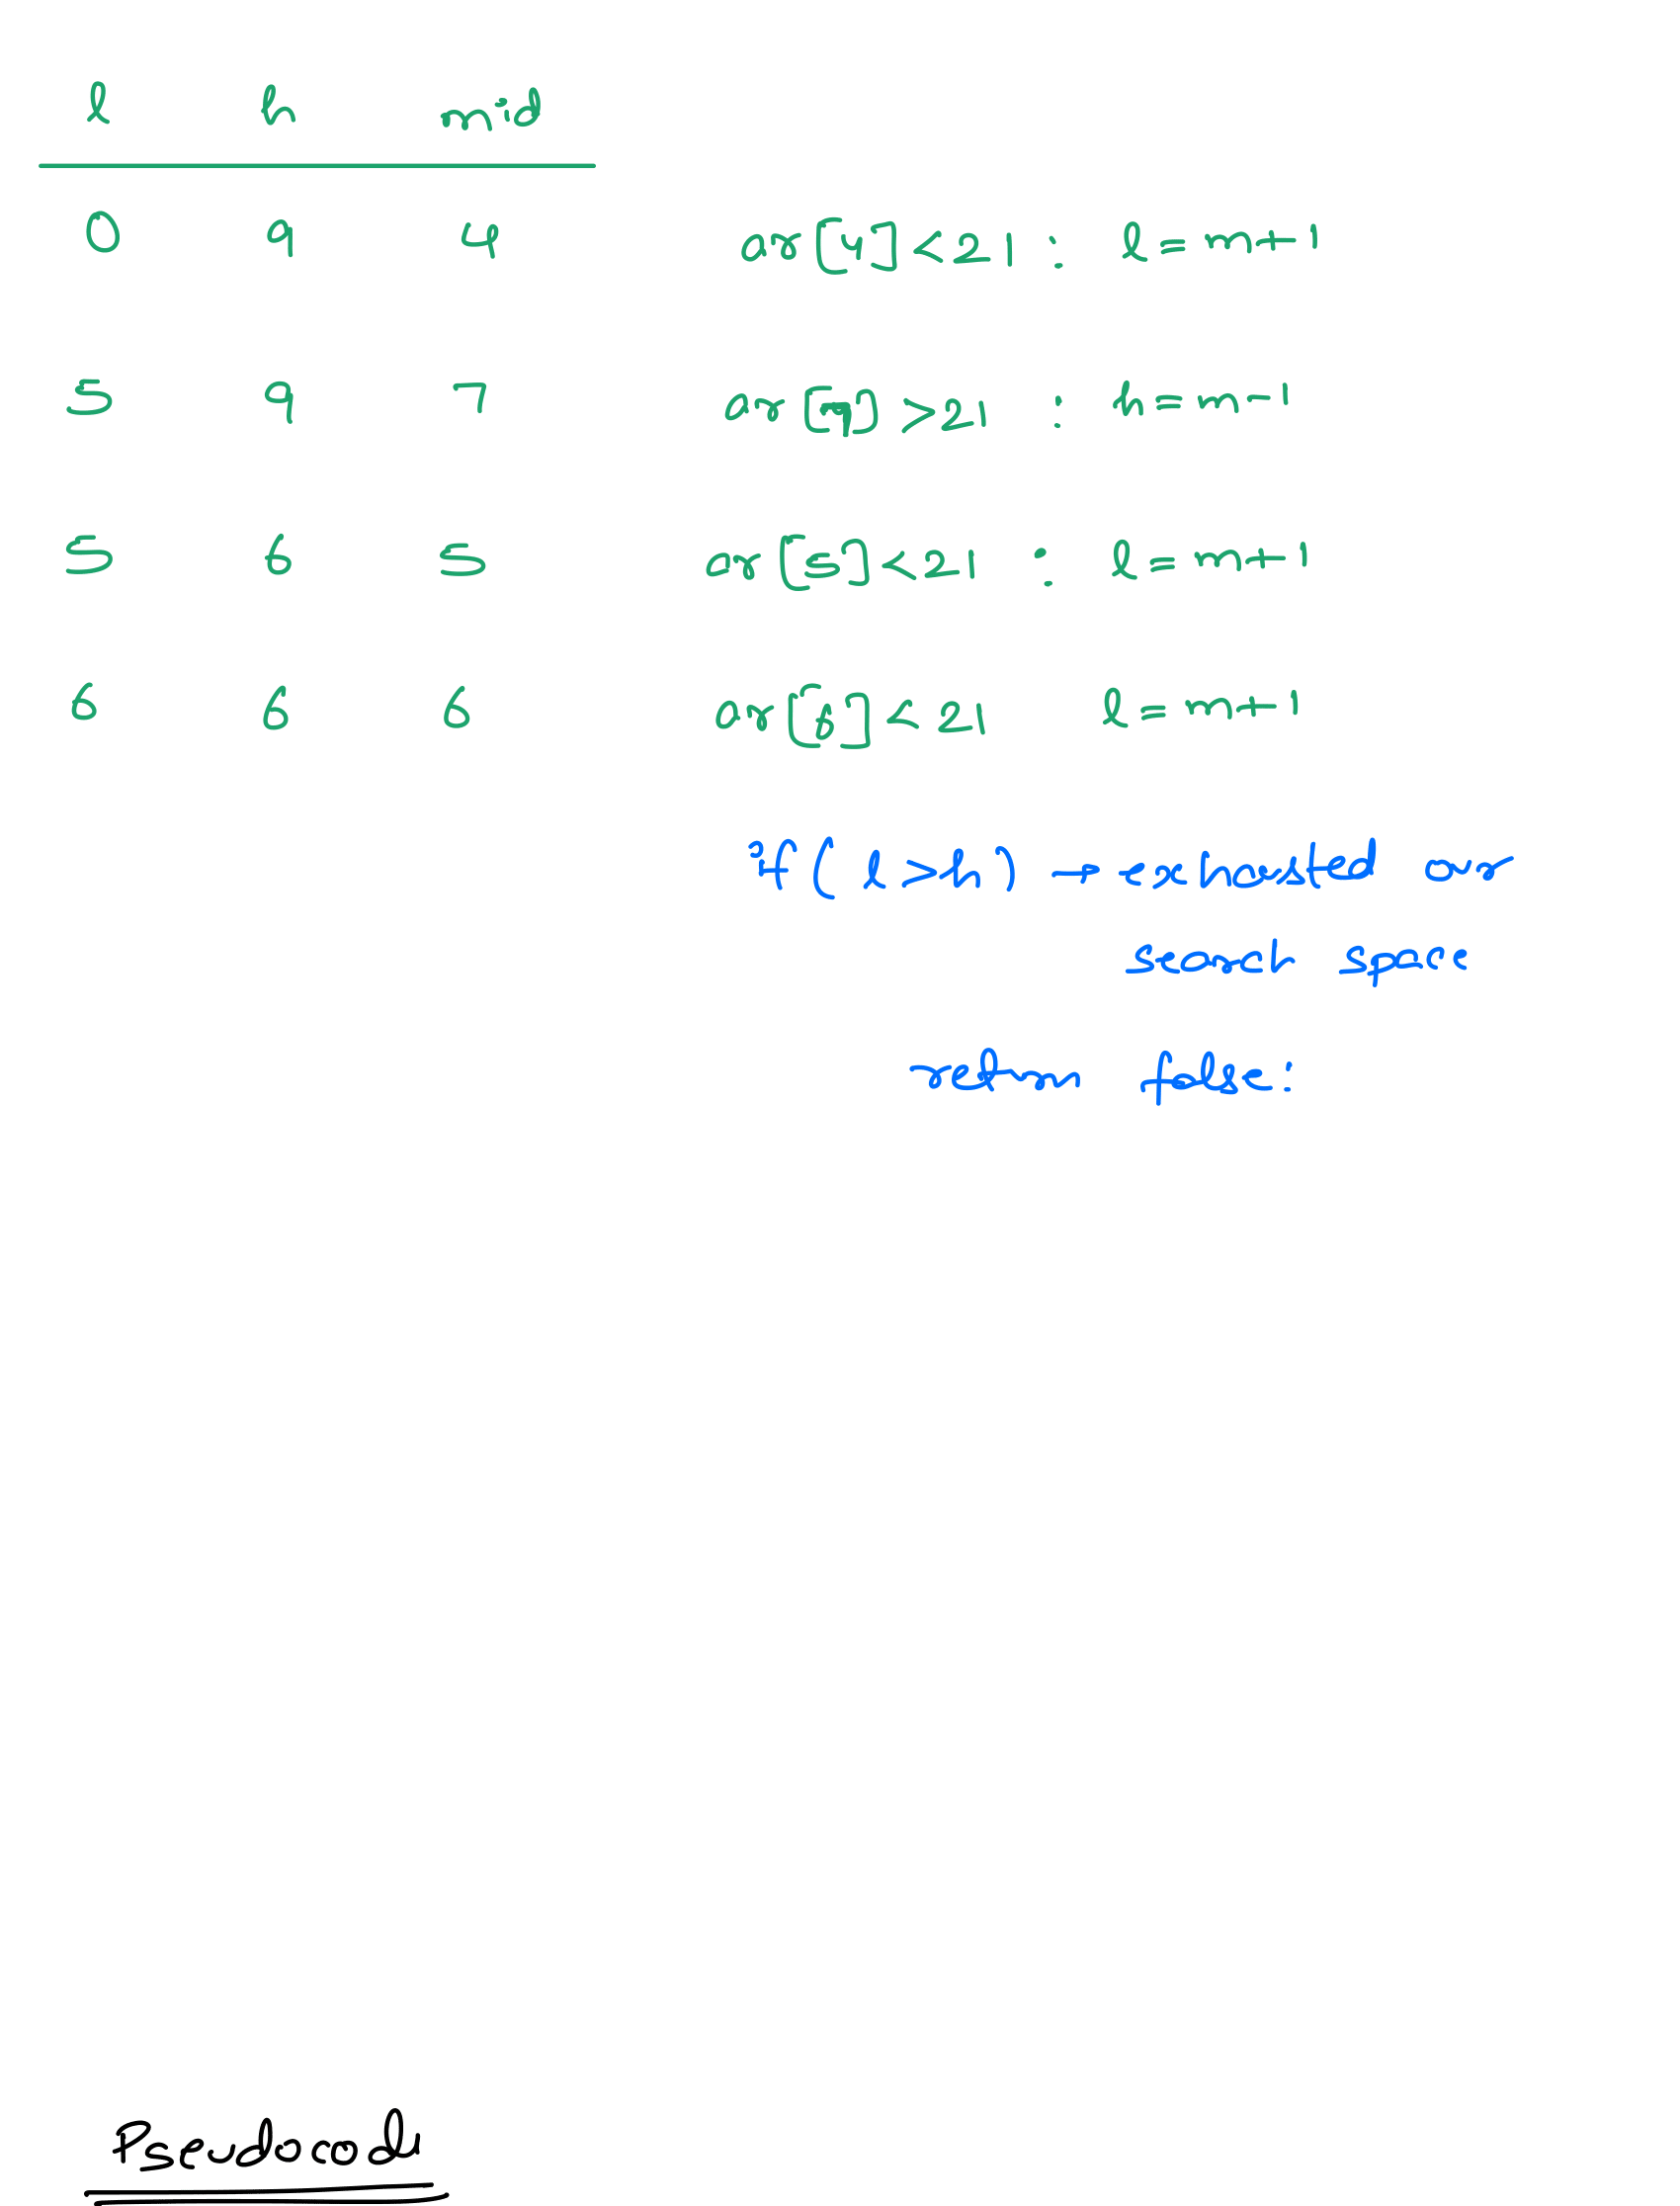 l h mid
0 9 4 ar[4]<21 : l=m+1
5 9 7 ar[7] >21 : h=m-1
5 6 5 ar[5]<21 : l=m+1
6 6 6 ar[6]< 21 l=m+1
if( l>h) → exhausted our
search space
return false:
Pseudocode